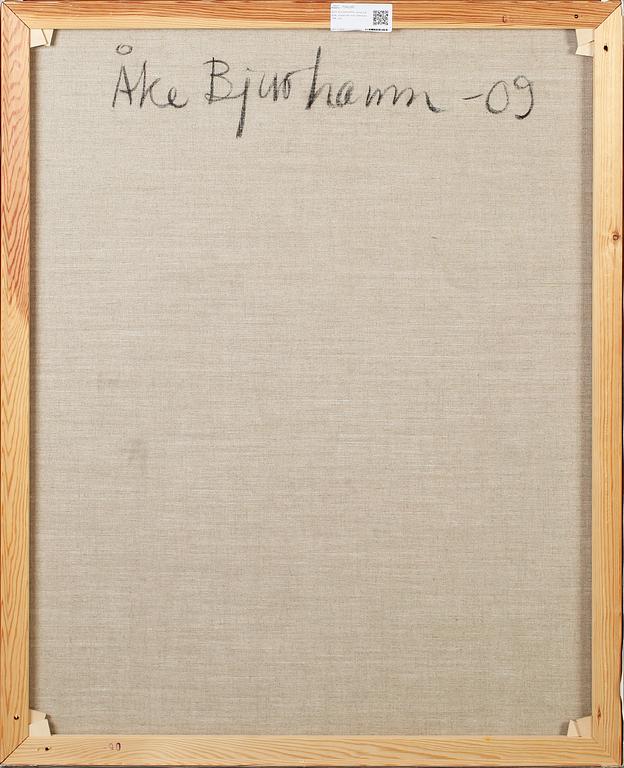 Åke Bjurhamn -09
90